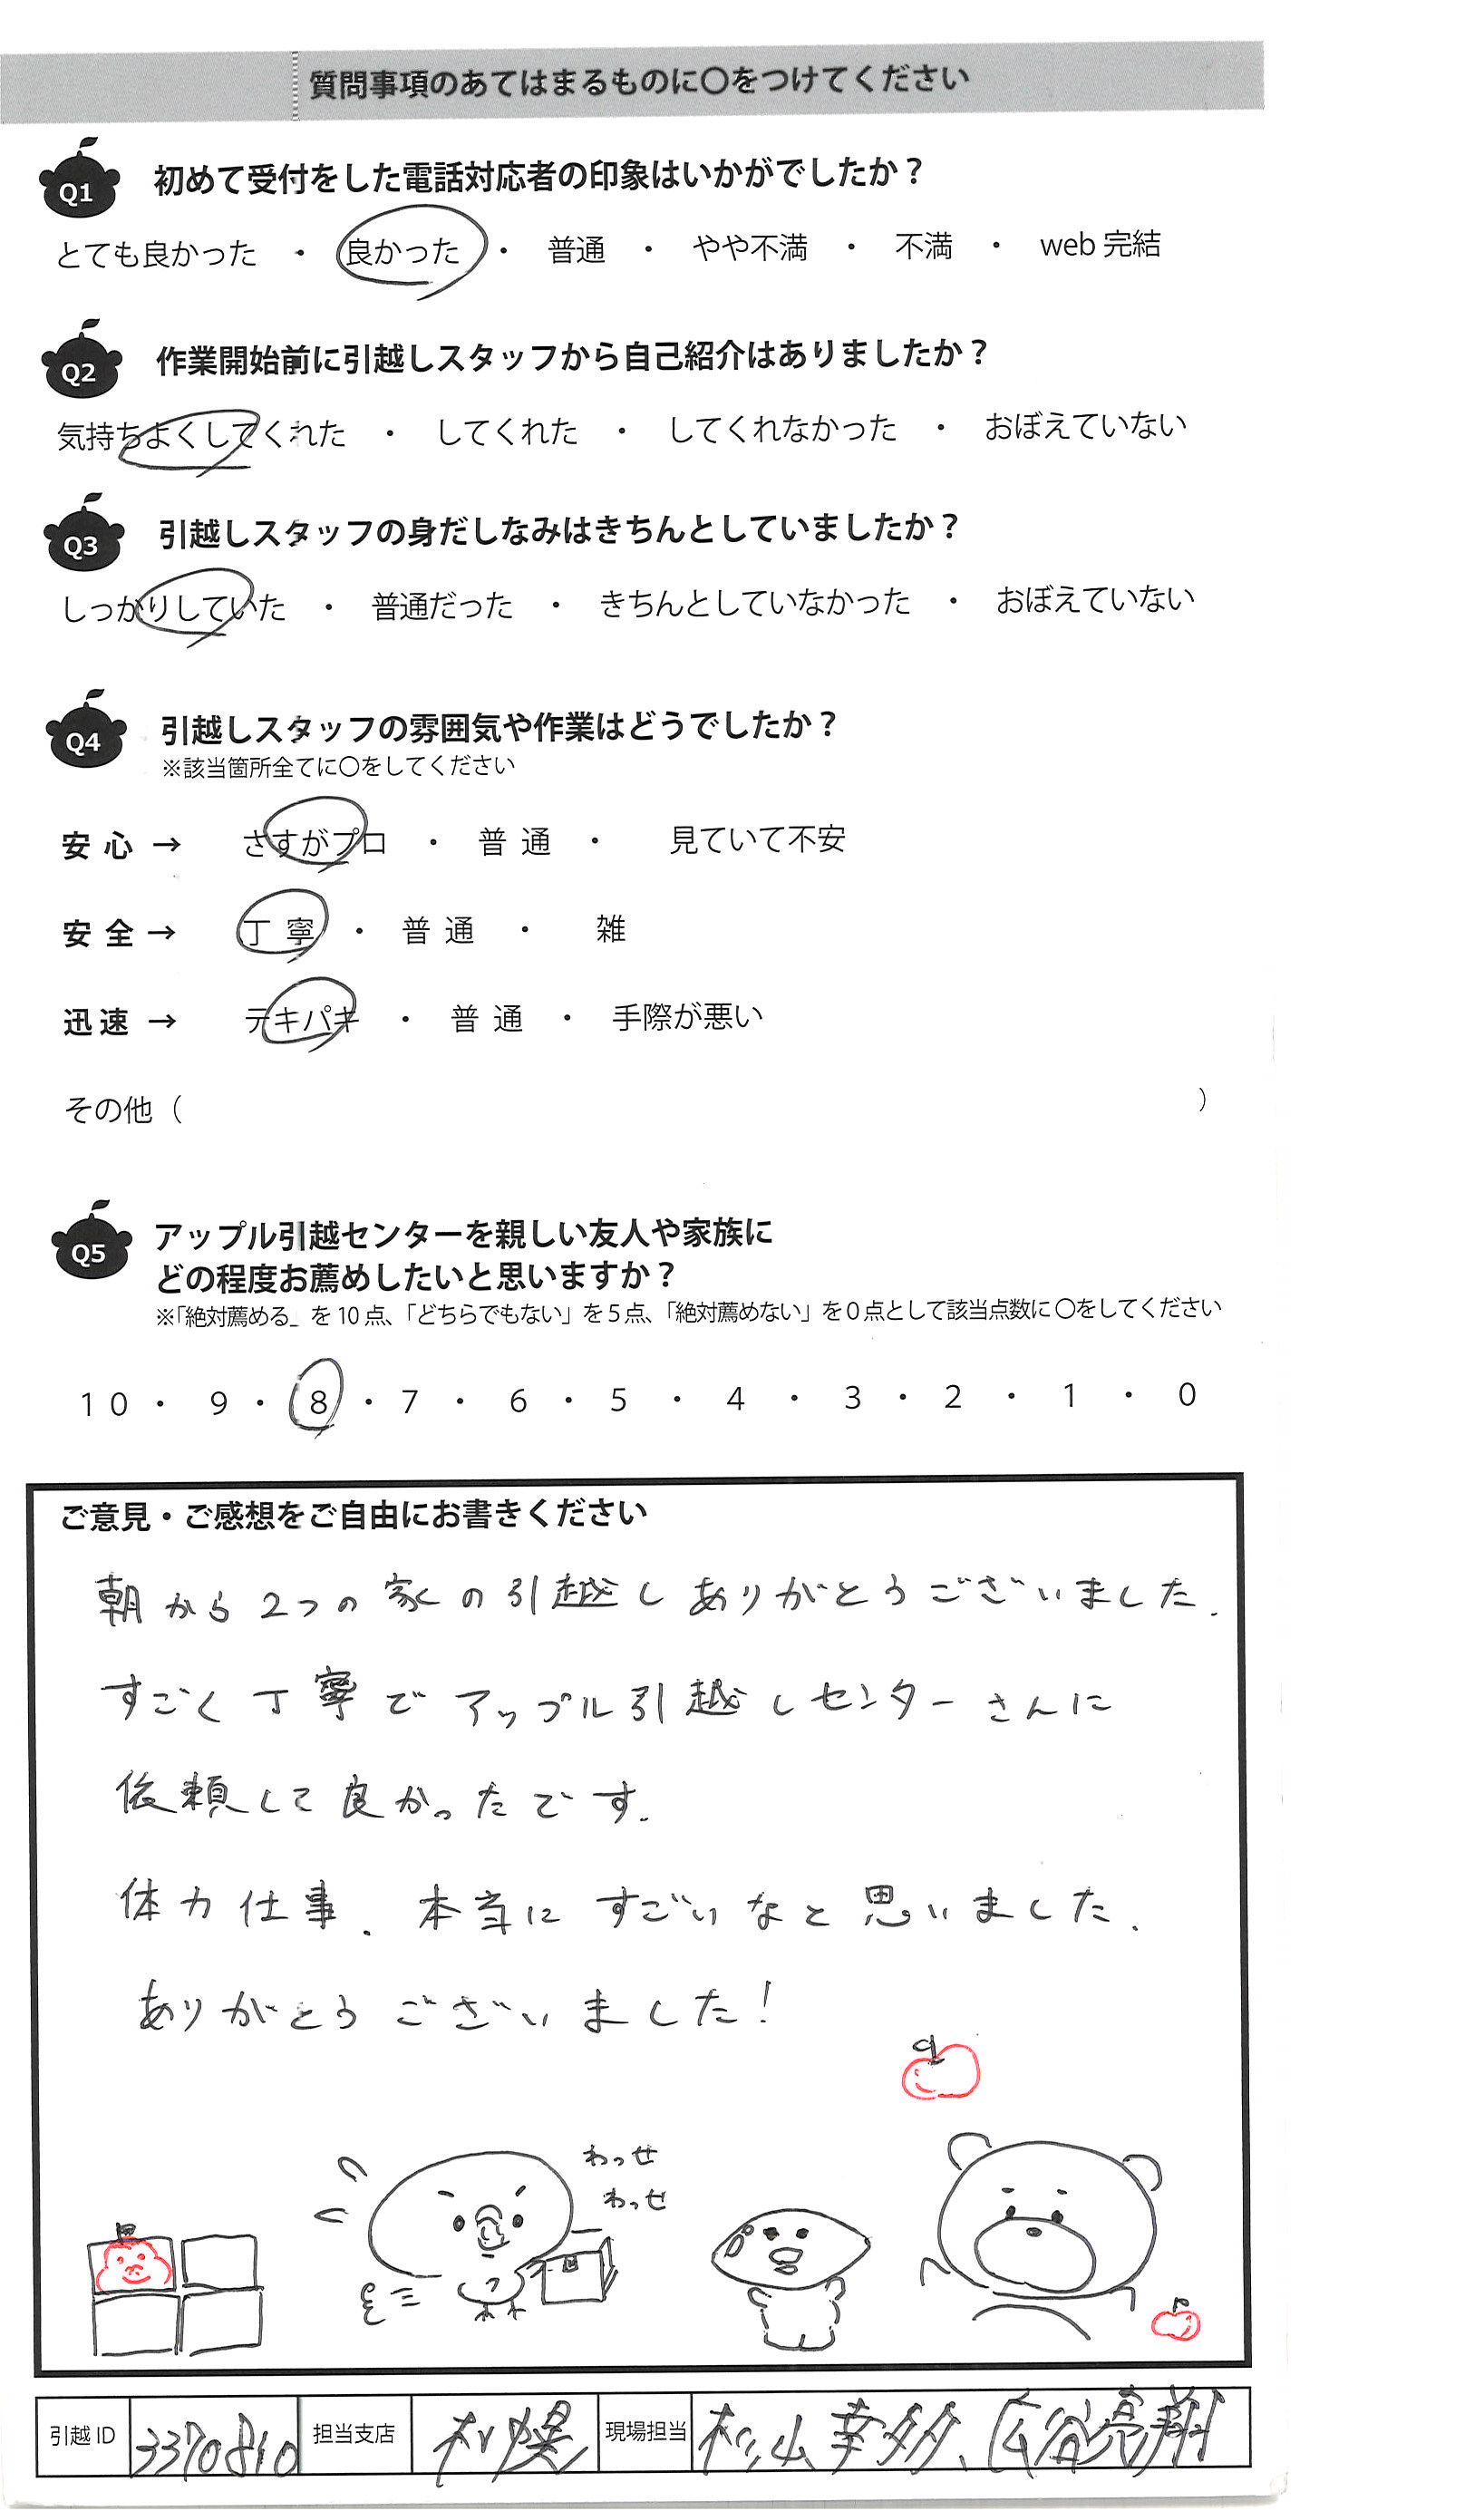 質問事項のあてはまるものに〇をつけてください
Q1 初めて受付をした電話対応者の印象はいかがでしたか？
とても良かった ・ 良かった ・ 普通 ・ やや不満 ・ 不満 ・ web 完結
Q2 作業開始前に引越しスタッフから自己紹介はありましたか？
気持ちよくしてくれた ・ してくれた ・ してくれなかった ・ おぼえていない
Q3 引越しスタッフの身だしなみはきちんとしていましたか？
しっかりしていた ・ 普通だった ・ きちんとしていなかった ・ おぼえていない
Q4 引越しスタッフの雰囲気や作業はどうでしたか？
※該当箇所全てに〇をしてください
安心 → さすがプロ ・ 普通 ・ 見ていて不安
安全 → 丁寧 ・ 普通 ・ 雑
迅速 → テキパキ ・ 普通 ・ 手際が悪い
その他（ ）
Q5 アップル引越センターを親しい友人や家族に
どの程度お薦めしたいと思いますか？
※「絶対薦める」を10点、「どちらでもない」を5点、「絶対薦めない」を0点として該当点数に〇をしてください
10 ・ 9 ・ 8 ・ 7 ・ 6 ・ 5 ・ 4 ・ 3 ・ 2 ・ 1 ・ 0
ご意見・ご感想をご自由にお書きください
朝から2つの家の引越しありがとうございました.
すごく丁寧でアップル引越しセンターさんに
依頼して良かったです.
体力仕事. 本当にすごいなと思いました.
ありがとうございました!
わっせ
わっせ
引越ID 3370810 担当支店 札幌 現場担当 杉山幸多、広谷亮翔